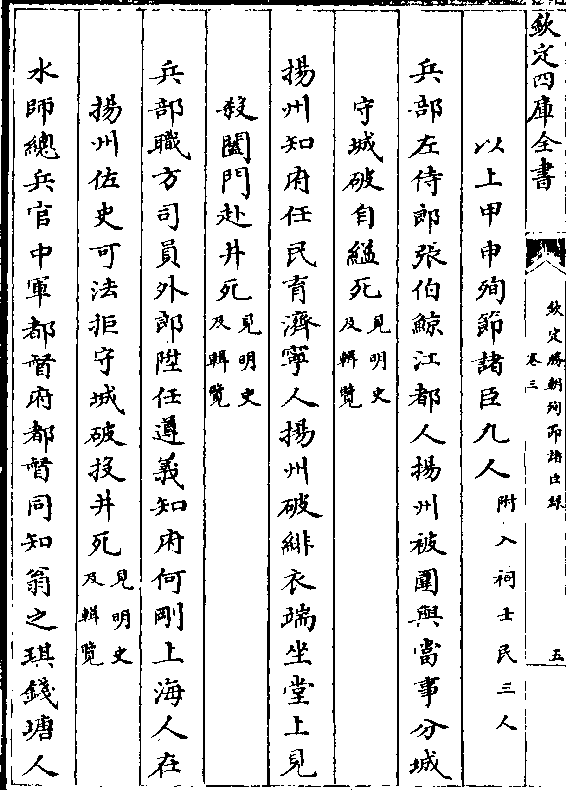 欽定四庫全書
欽定勝朝殉節諸臣録
卷三
五
以上甲申殉節諸臣九人附入祠士民三人
兵部左侍郎張伯鯨江都人揚州被圍與當事分城
守城破自縊死見明史及輯覽
揚州知府任民育濟寧人揚州破緋衣端坐堂上見
殺闔門赴井死見明史及輯覽
兵部職方司員外郎陞任遵義知府何剛上海人在
揚州佐史可法拒守城破投井死見明史及輯覽
水師總兵官中軍都督府都督同知翁之琪錢塘人